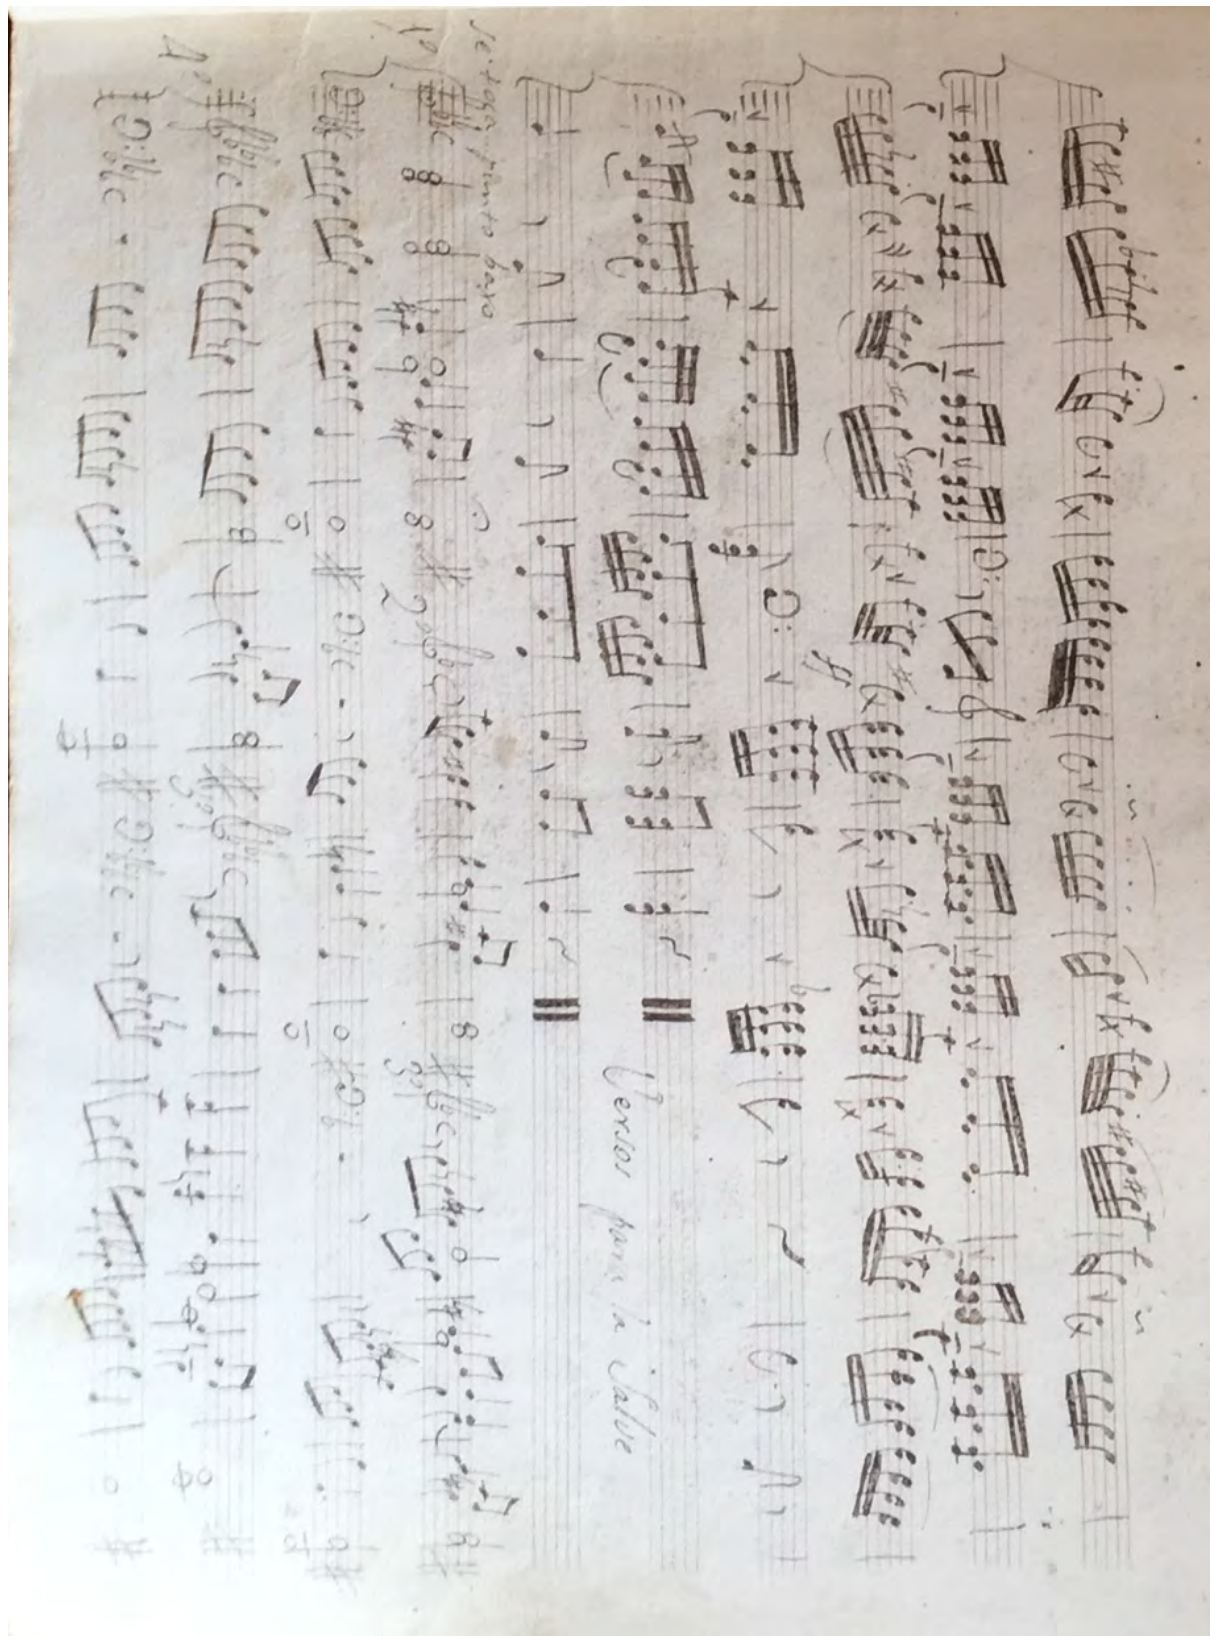 Versos para la Salve
se toca punto baxo
1º
2º
3º
4º